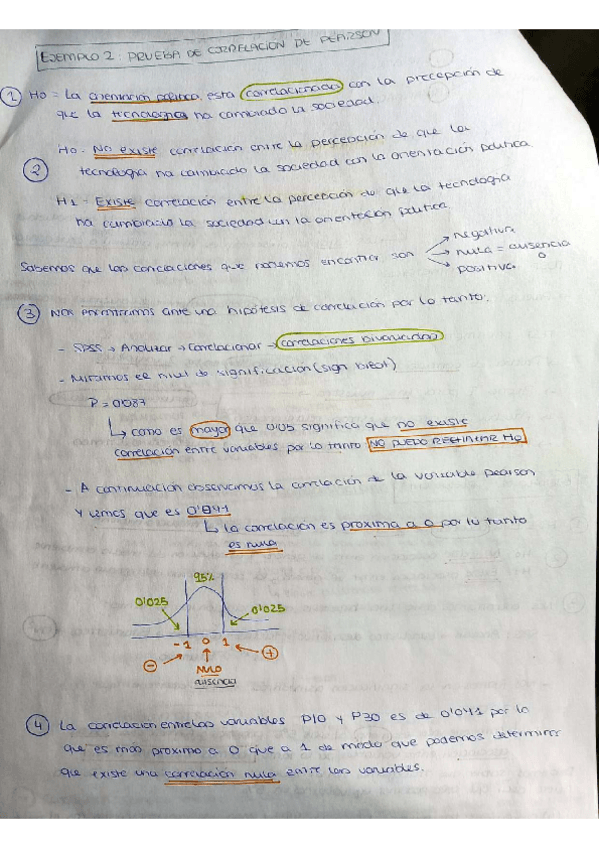 EJEMPLO 2: PRUEBA DE CORRELACION DE PEARSON
① H0 = La orientación política esta correlacionada con la precepción de
que la tecnologia ha cambiado la sociedad.
② H0 - No existe correlacion entre la percepción de que la
tecnologia ha cambiado la sociedad con la orientación politica
H1 - Existe correlación entre la percepción de que la tecnologia
ha cambiado la sociedad con la orientación politica
Sabemos que las correlaciones que podemos encontrar son
negativa
nula = ausencia
0
positiva
③ Nos encontramos ante una hipótesis de correlación por lo tanto:
- SPSS → Analizar → Correlacionar → correlaciones bivariadas
- Miramos el nivel de significación (sign bilat)
P = 0'087
↳ como es mayor que 0'05 significa que no existe
correlación entre variables por lo tanto NO PUEDO RECHAZAR H0
- A continuación observamos la correlación de la variable pearson
y vemos que es 0'041
↳ la correlación es proxima a 0 por lo tanto
es nula
95%
0'025
0'025
-1 0 1
⊖ ⊕
NULO
ausencia
④ La correlacion entre las variables P10 y P30 es de 0'041 por lo
que es más proximo a 0 que a 1 de modo que podemos determinar
que existe una correlación nula entre las variables.